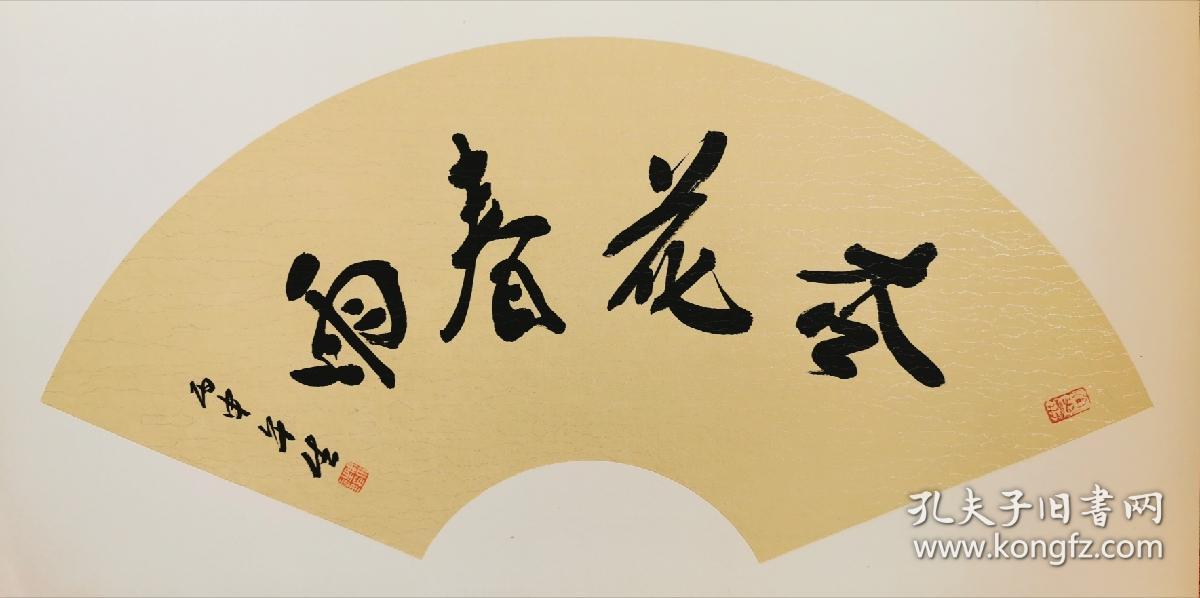 杏花春雨
丙申
孔夫子旧書网
www.kongfz.com